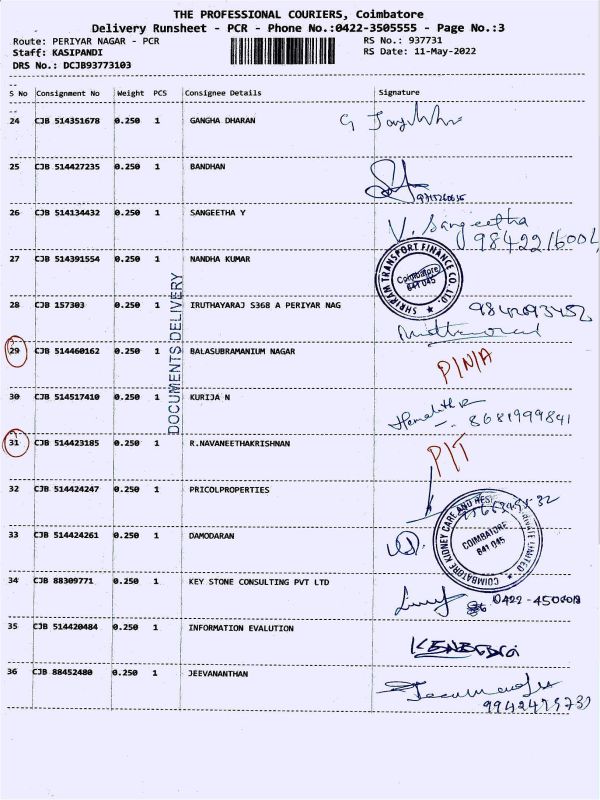 THE PROFESSIONAL COURIERS, Coimbatore
Delivery Runsheet - PCR - Phone No.:0422-3505555 - Page No.:3
Route: PERIYAR NAGAR - PCR RS No.: 937731
Staff: KASIPANDI RS Date: 11-May-2022
DRS No.: DCJB93773103
S No Consignment No Weight PCS Consignee Details Signature
24 CJB 514351678 0.250 1 GANGHA DHARAN
25 CJB 514427235 0.250 1 BANDHAN
26 CJB 514134432 0.250 1 SANGEETHA Y V. Sangeetha
27 CJB 514391554 0.250 1 NANDHA KUMAR
SHRIRAM TRANSPORT FINANCE CO. LTD.
Coimbatore
641 045
28 CJB 157303 0.250 1 IRUTHAYARAJ S368 A PERIYAR NAG
DOCUMENTS DELIVERY
29 CJB 514460162 0.250 1 BALASUBRAMANIUM NAGAR P/N/A
30 CJB 514517410 0.250 1 KURIJA N
8681999841
31 CJB 514423185 0.250 1 R.NAVANEETHAKRISHNAN P/T
32 CJB 514424247 0.250 1 PRICOLPROPERTIES
33 CJB 514424261 0.250 1 DAMODARAN
COIMBATORE
641 045
34 CJB 88309771 0.250 1 KEY STONE CONSULTING PVT LTD
35 CJB 514420484 0.250 1 INFORMATION EVALUTION
36 CJB 88452480 0.250 1 JEEVANANTHAN